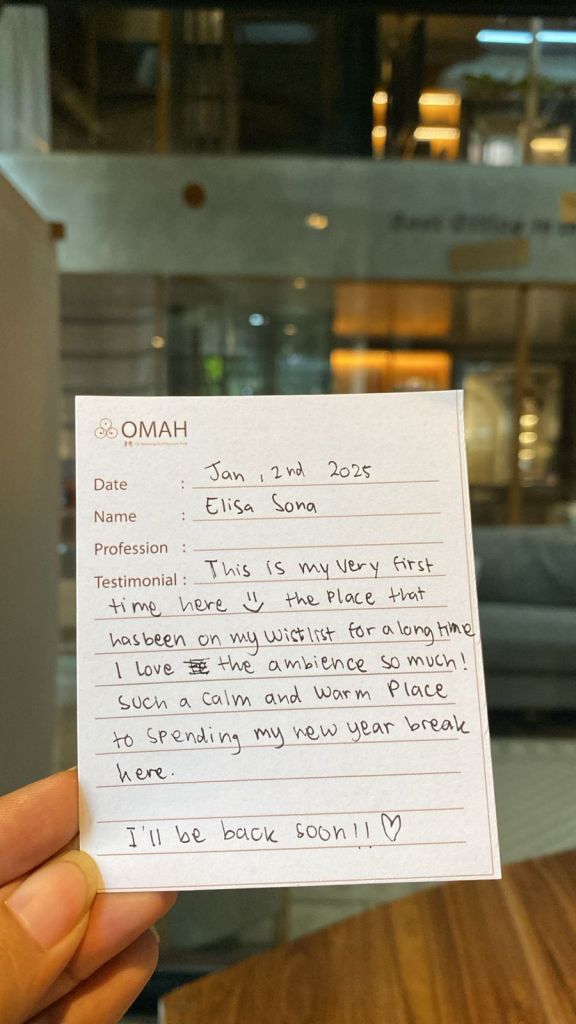 OMAH
Date : Jan, 2nd 2025
Name : Elisa Sona
Profession :
Testimonial : This is my very first
time here the place that
hasbeen on my wistlist for a long time
I love the ambience so much!
Such a calm and warm place
to spending my new year break
here.
I'll be back soon!!